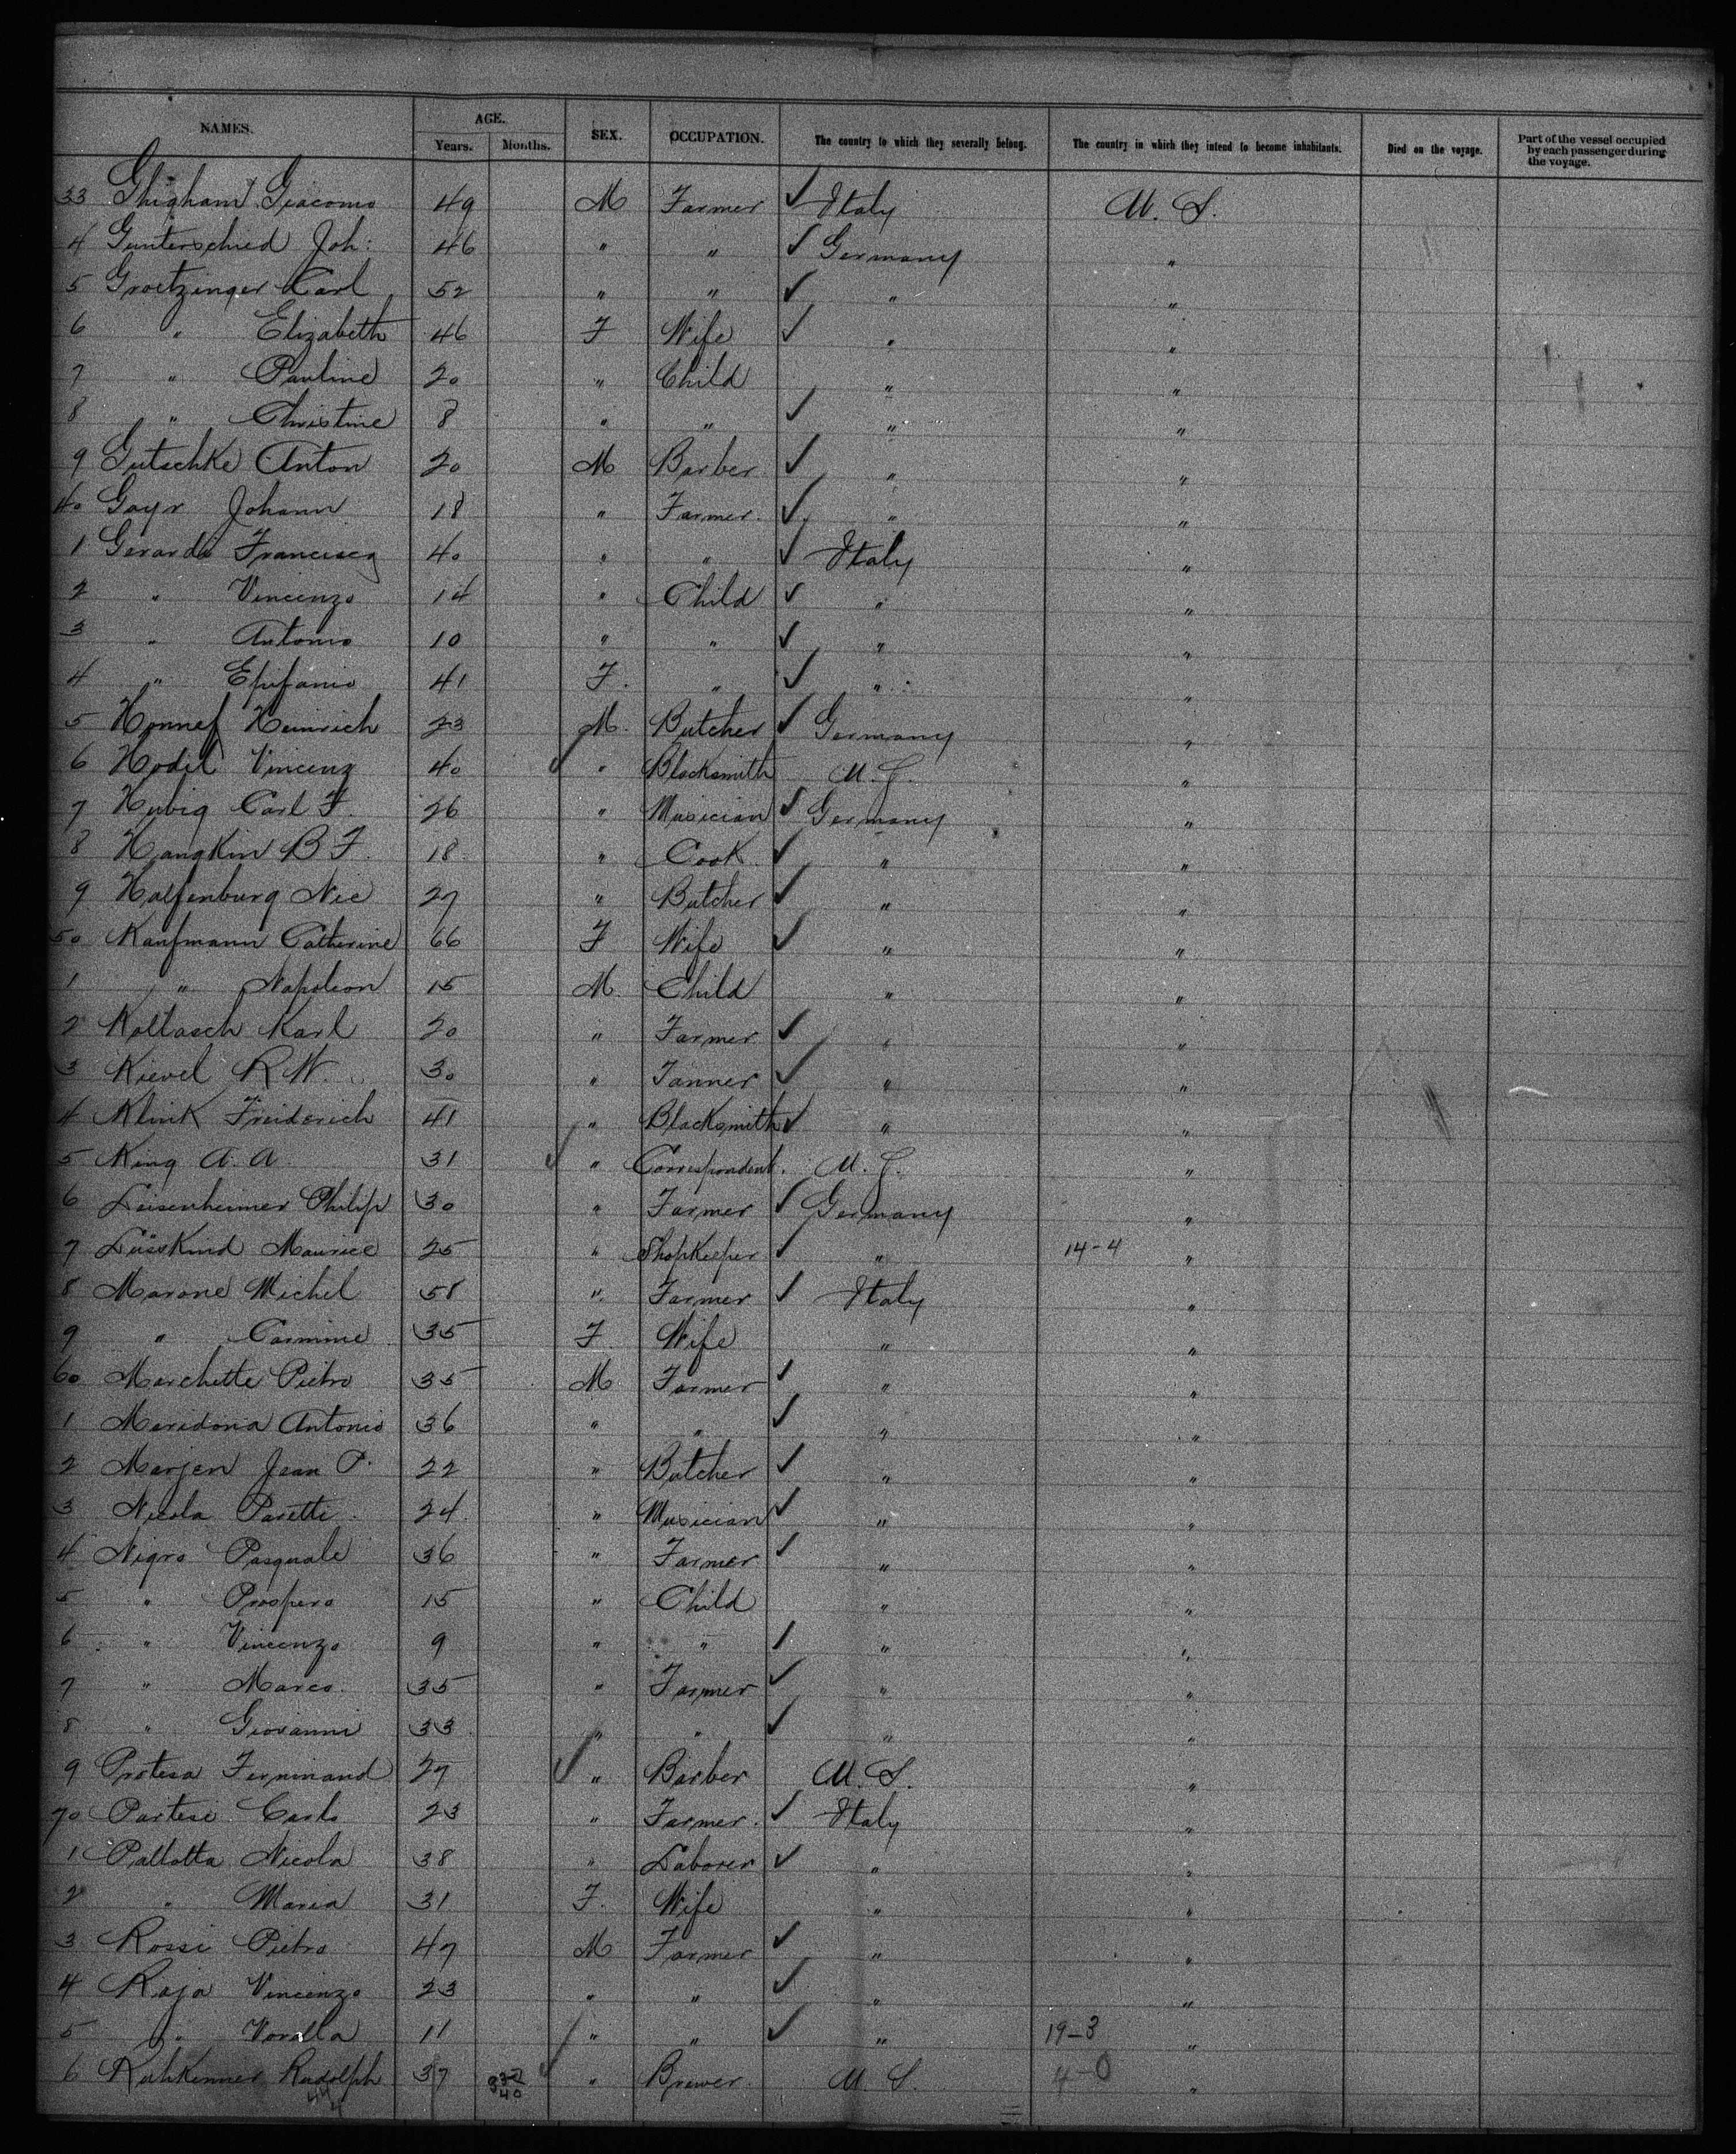 NAMES. AGE. SEX. OCCUPATION. The country to which they severally belong. The country in which they intend to become inhabitants. Died on the voyage. Part of the vessel occupied by each passenger during the voyage.
Years. Months.
33 Giacomo 49 M Farmer ✓ Italy U. S.
4 Gunterschied Joh: 46 " " ✓ Germany "
5 Groetzinger Carl 52 " " ✓ " "
6 " Elizabeth 46 F Wife ✓ " "
7 " Pauline 20 " Child " "
8 " Christine 8 " " ✓ " "
9 Gutschke Anton 20 M Barber ✓ " "
40 Gayr Johann 18 " Farmer. ✓ " "
1 Gerardo 40 " " ✓ Italy "
2 " Vincenzo 14 " Child ✓ " "
3 " Antonio 10 " " ✓ " "
4 " Epifanio 41 F. " ✓ " "
5 Honnef Heinrich 23 M. Butcher ✓ Germany "
6 Hodil Vincenz 40 ✓ " Blacksmith U. S. "
7 Hubig Carl F. 26 " Musician ✓ Germany "
8 Hangkin B F. 18 " Cook ✓ " "
9 Halfenburg Nic 27 " Butcher ✓ " "
50 Kaufmann Catherine 66 F Wife ✓ " "
1 " Napoleon 15 M. Child " "
2 Koltasch Karl 20 " Farmer ✓ " "
3 Kievel R W. 30 " Tanner ✓ " "
4 Klink Freiderich 41 " Blacksmith ✓ " "
5 King A. A. 31 ✓ " Correspondent. U. S. "
6 Leisenheimer Philip 30 " Farmer ✓ Germany "
7 Maurice 25 " Shopkeeper ✓ " 14-4 "
8 Marone Michel 58 " Farmer ✓ Italy "
9 " Carmine 35 F. Wife " "
60 Marchette Pietro 35 M. Farmer ✓ " "
1 Maridonia Antonio 36 " " ✓ " "
2 Marjen Jean P. 22 " Butcher ✓ " "
3 Nicola Paretti 24 " Musician ✓ " "
4 Nigro Pasquale 36 " Farmer ✓ " "
5 " Prospero 15 " Child " "
6 " Vincenzo 9 " " ✓ " "
7 " Marco. 35 " Farmer ✓ " "
8 " Giovanni 33 " " ✓ " "
9 Protesa Ferninand 27 ✓ " Barber U. S. "
70 Partesi Carlo 23 " Farmer. ✓ Italy "
1 Pallotta Nicola 38 " Laborer ✓ " "
2 " Maria 31 F. Wife " "
3 Rossi Pietro 47 M Farmer ✓ " "
4 Raja Vincenzo 23 " " ✓ " "
5 " 11 " " ✓ " 19-3 "
6 Rudolph 37 ✓ " Brewer U. S. 4-0 "
40
44